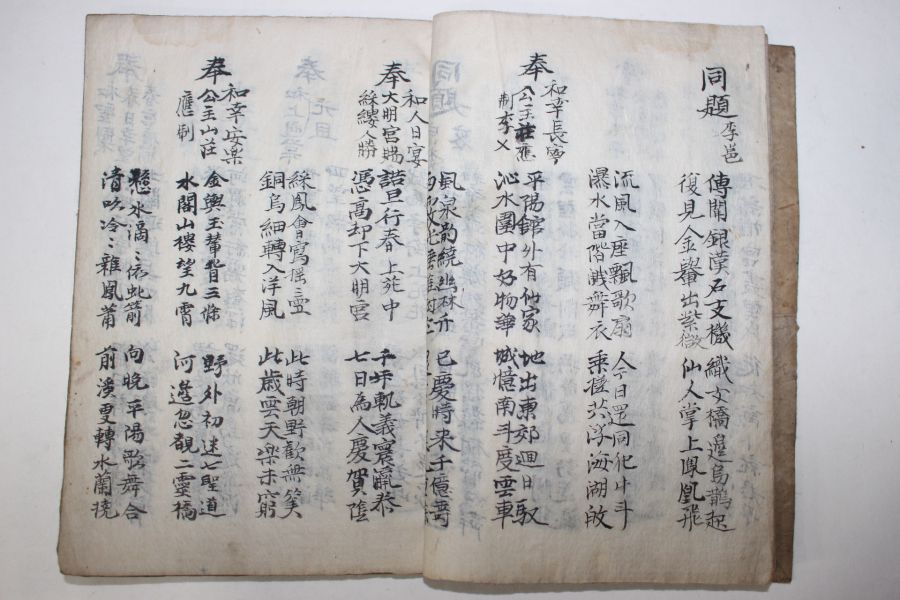 同題 李邕
傳聞銀漢石支機 織女橋邊烏鵲起
復見金轝出紫微 仙人掌上鳳凰飛
流風入座飄歌扇 今日還同犯斗
瀑水當階濺舞衣 乘槎共浮海湖
奉 和幸長寧
公主莊應
制李乂
平陽舘外有仙家 地出東郊迴日馭
沁水園中好物華 城憶南斗度雲車
風泉韵繞幽林 已慶時來千億壽
奉 和人日宴
大明宮賜
綵縷人勝
詰旦行春上苑中 千軌義寰瀛泰
憑高却下大明宮 七日為人慶賀隆
綵鳳會寫瑤 此時朝野歡無筭
銅烏細轉入洋風 此歲雲天樂未窮
奉 和幸安樂
公主山莊
應制
金輿玉輦皆三條 野外初迷七聖道
水閣山樓望九霄 河邊忽覩二靈橋
懸水滴〻依虬箭 向晚平陽歌舞合
清吹冷〻雜鳳蕭 前溪更轉水蘭橈